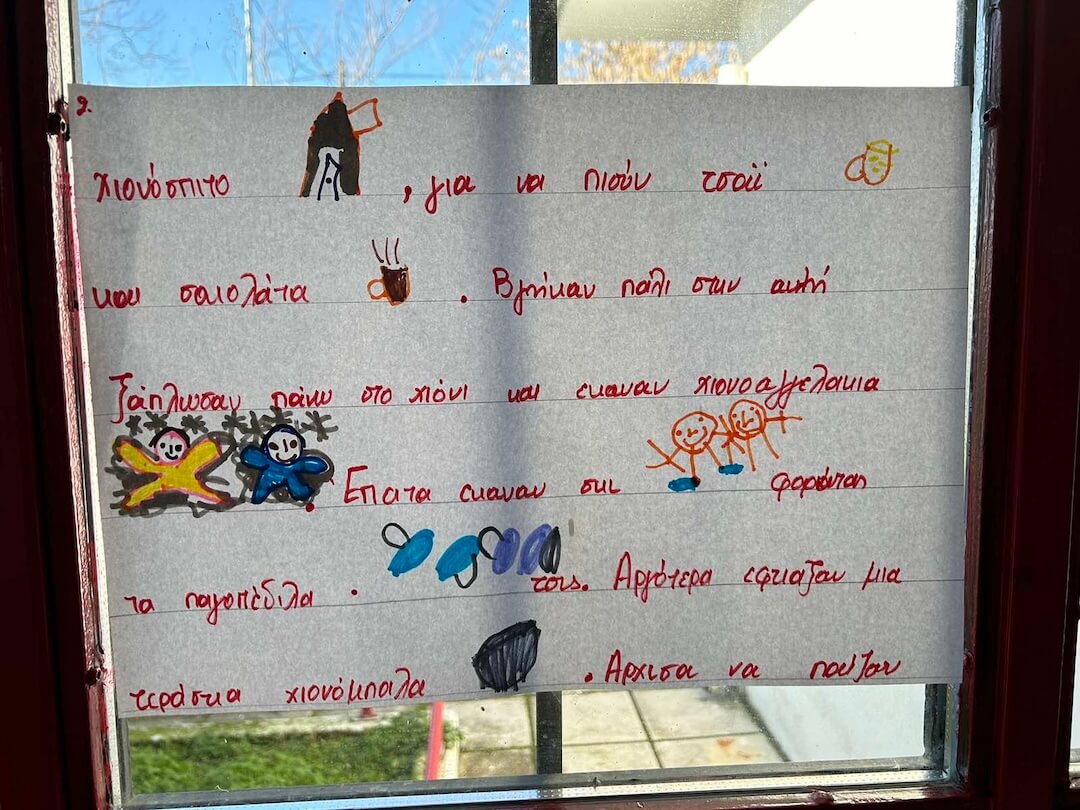 2.
χιονόσπιτο , για να πιούν τσαϊ
και σοκολάτα . Βγήκαν πάλι στην αυλή
ξάπλωσαν πάνω στο χιόνι και εκαναν χιονοαγγελακια
. Επιτα εκαναν σκι φορώντας
τα παγοπέδιλα . τους. Αργότερα εφτιαξαν μια
τεράστια χιονόμπαλα . Αρχισα να παίζουν